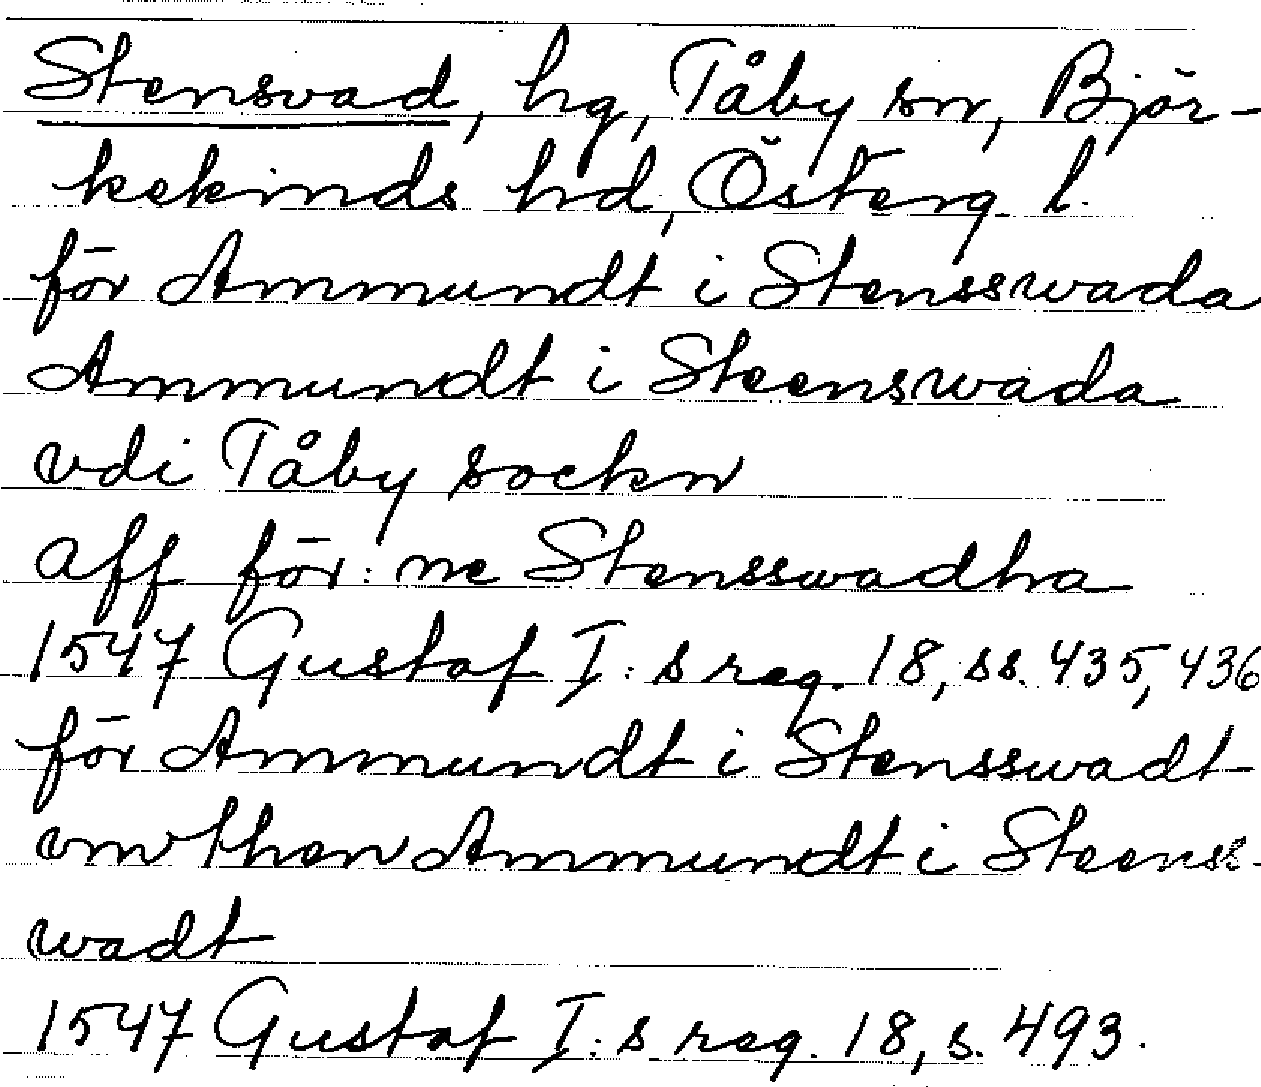 Stensvad, hg, Tåby sn, Björ-
kekinds hd, Österg. l.
för Ammundt i Stensswada
Ammundt i Steenswada
vdi Tåby sockn
aff för: ne Stensswadha
1547 Gustaf I: s reg. 18, ss. 435, 436
för Ammundt i Stensswadt
vm then Ammundt i Steenss-
wadt
1547 Gustaf I: s reg. 18, s. 493.